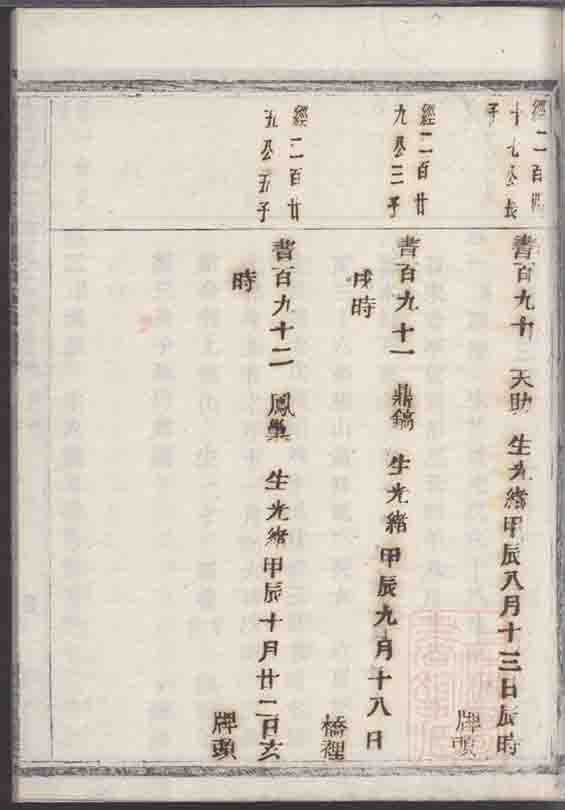 經二百
十七公長
子
書百九十 天助 生光緒甲辰八月十三日辰時
牌頭
經二百廿
九公三子
書百九十一 鼎鎬 生光緒甲辰九月十八日
戌時
橋裡
經二百廿
五公五子
書百九十二 鳳巢 生光緒甲辰十月廿二日亥
時
牌頭